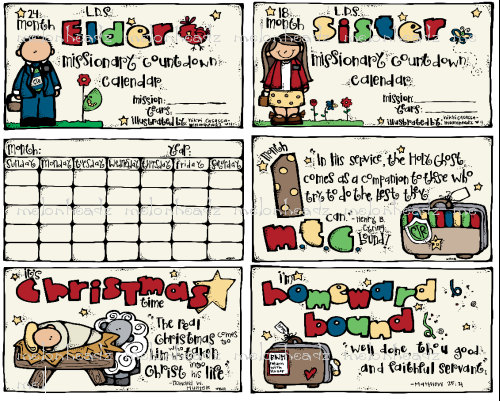 24 month
L.D.S.
Elder
missionary countdown
calendar
mission:
Years:
illustrated by:
18 month
L.D.S.
Sister
missionary countdown
calendar
mission:
Years:
illustrated by:
month:
Year:
Sunday Monday Tuesday Wednesday Thursday Friday Saturday
month
1
"In his service, the Holy Ghost
comes as a companion to those who
try to do the best they
can."
Henry B.
Eyring
m.t.c.
bound!
CTR
it's
Christmas
time
The real
Christmas
comes to
him who has
taken
Christ into
his life.
-Howard W.
Hunter
i'm
homeward
bound
well done, thou good
and faithful servant.
-Matthew 25:21
melonheadz